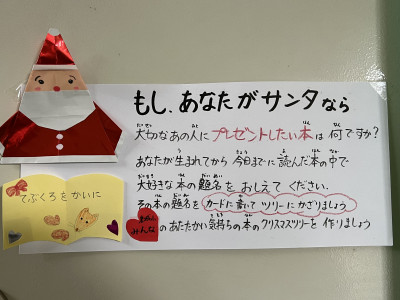 もし、あなたがサンタなら
大切なあの人にプレゼントしたい本は何ですか?
あなたが生まれてから今日までに読んだ本の中で
大好きな本の題名をおしえてください。
その本の題名をカードに書いてツリーにかざりましょう
みんなのあたたかい気持ちの本のクリスマスツリーを作りましょう
てぶくろをかいに